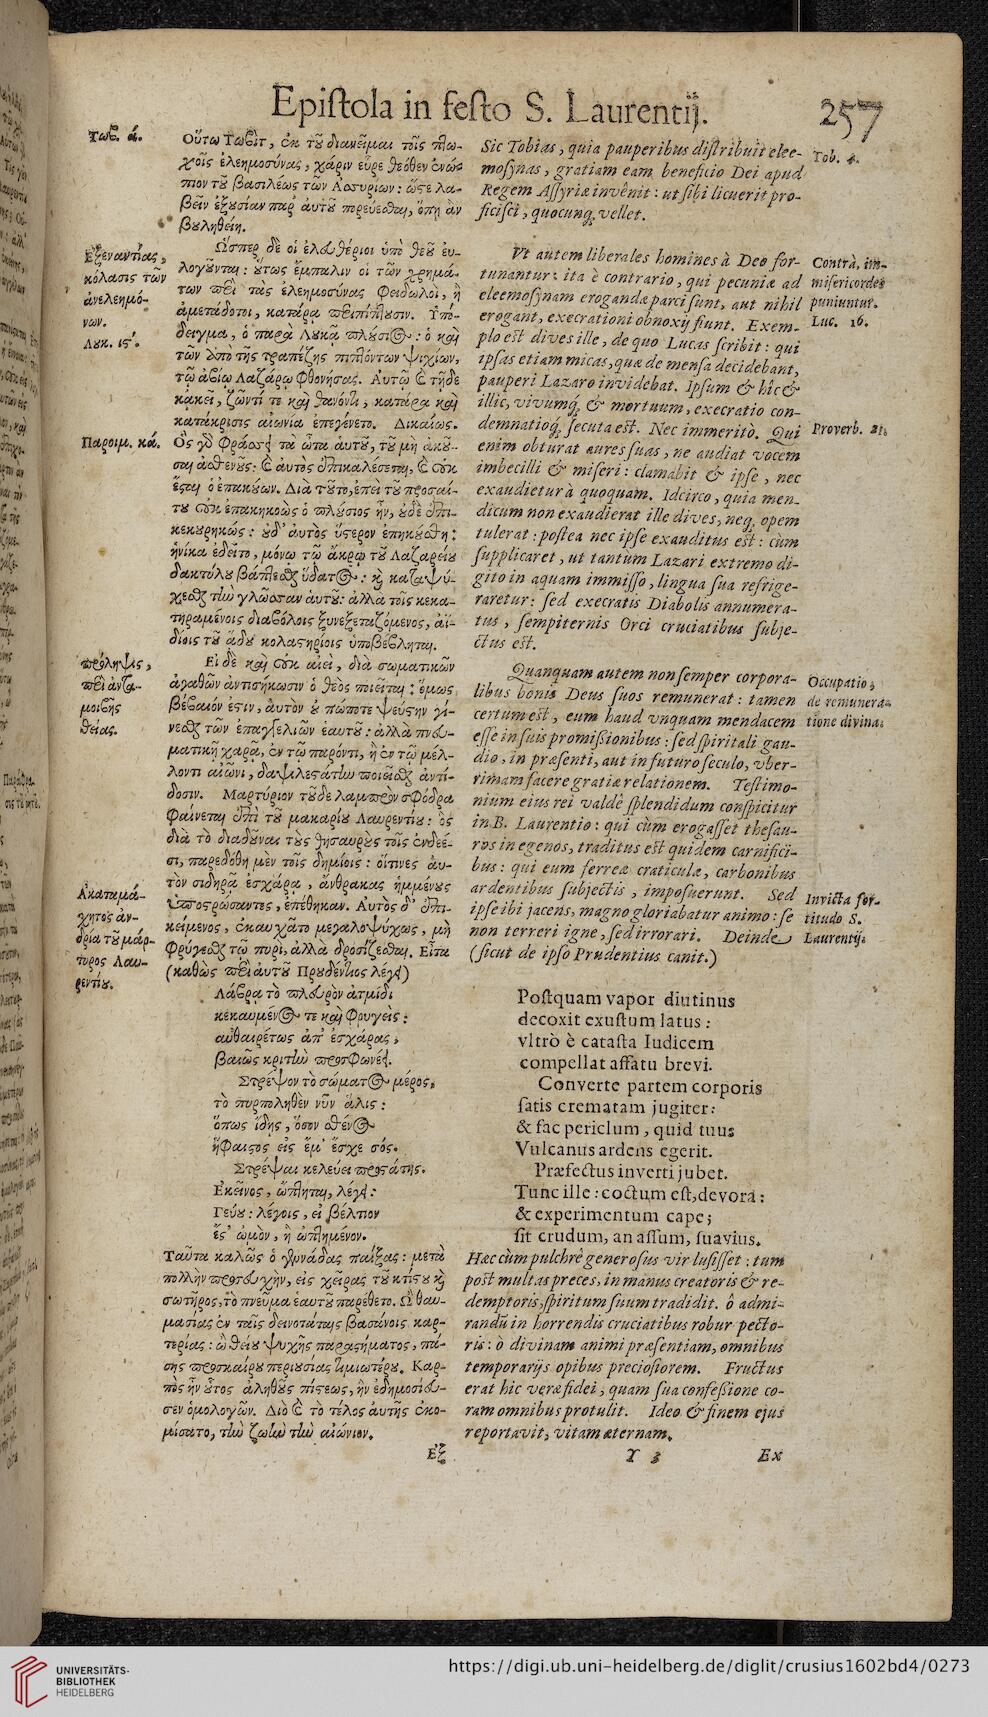 Epistola in festo S. Laurentij.
257
Τωβ. ά.
Οὕτω Τωβὶτ, ἐκ τοῦ διανεῖμαι τοῖς πτω-
χοῖς ἐλεημοσύνας, χάριν εὗρε θεόθεν ἐνώ-
πιον τοῦ βασιλέως τῶν Ἀσσυρίων: ὥστε λα-
βεῖν ἐξουσίαν παρ' αὐτοῦ πορεύεσθαι, ὅπῃ ἂν
βουληθείη.
Ἐξεναντίας,
κόλασις τῶν
ἀνελεημό-
νων.
Λουκ. ις΄.
Ὥσπερ δὲ οἱ ἐλευθέριοι ὑπὸ θεοῦ εὐ-
λογοῦνται: οὕτως ἔμπαλιν οἱ τῶν χρημά-
των περὶ τὰς ἐλεημοσύνας φειδωλοὶ, ἢ
ἀμετάδοτοι, κατάρᾳ περιπίπτουσιν. Ὑπό-
δειγμα, ὁ παρὰ Λουκᾷ πλούσιος: ὁ καὶ
τῶν ἀπὸ τῆς τραπέζης πιπτόντων ψιχίων,
τῷ ἀβίῳ Λαζάρῳ φθονήσας. Αὐτῷ καὶ τῇδε
κᾀκεῖ, ζῶντί τε καὶ θανόντι, κατάρα καὶ
κατάκρισις αἰωνία ἐπεγένετο. Δικαίως.
Παροιμ. κά.
Ὃς γὰρ φράσσει τὰ ὦτα αὐτοῦ, τοῦ μὴ ἀκοῦ-
σαι ἀσθενοῦς: καὶ αὐτὸς ἐπικαλέσεται, καὶ οὐκ
ἔσται ὁ ἐπακούων. Διὰ τοῦτο, ἐπεὶ τοῦ προσαί-
του οὐκ ἐπακηκοὼς ὁ πλούσιος ἦν, οὐδὲ ἐπι-
κεκουρηκώς: οὐδ' αὐτὸς ὕστερον ἐπηκούσθη:
ἡνίκα ἐδεῖτο, μόνῳ τῷ ἄκρῳ τοῦ Λαζαρείου
δακτύλου βάπτεσθαι ὕδατος: καὶ καταψύ-
χεσθαι τὴν γλῶσσαν αὐτοῦ: ἀλλὰ τοῖς κεκα-
τηραμένοις διαβόλοις ξυνεξεταζόμενος, ἀϊ-
δίοις τοῦ ᾅδου κολαστηρίοις ὑποβέβληται.
πρόληψις,
περὶ ἀντα-
μοιβῆς
θείας.
Εἰ δὲ καὶ οὐκ αἰεὶ, διὰ σωματικῶν
ἀγαθῶν ἀντισήκωσιν ὁ θεὸς ποιεῖται: ὅμως
βέβαιόν ἐστιν, αὐτὸν οὐ πώποτε ψεύστην γί-
νεσθαι τῶν ἐπαγγελιῶν ἑαυτοῦ: ἀλλὰ πνευ-
ματικῇ χαρᾷ, ἐν τῷ παρόντι, ἢ ἐν τῷ μέλ-
λοντι αἰῶνι, δαψιλεστάτην ποιεῖσθαι ἀντί-
δοσιν. Μαρτύριον τοῦδε λαμπρὸν σφόδρα
φαίνεται ἐπὶ τοῦ μακαρίου Λαυρεντίου: ὃς
διὰ τὸ διαδοῦναι τοὺς θησαυροὺς τοῖς ἐνδεέ-
σι, παρεδόθη μὲν τοῖς δημίοις: οἵτινες αὐ-
τὸν σιδηρᾷ ἐσχάρᾳ, ἄνθρακας ἡμμένους
ὑποστρώσαντες, ἐπέθηκαν. Αὐτὸς δ' ἐπι-
κείμενος, ἐκαυχᾶτο μεγαλοψύχως, μὴ
φρύγεσθαι τῷ πυρὶ, ἀλλὰ δροσίζεσθαι. Εἶτα
(καθὼς περὶ αὐτοῦ Προυδέντιος λέγει)
Ἀκαταμά-
χητος ἀν-
δρία τοῦ μάρ-
τυρος Λαυ-
ρεντίου.
Λάβρα τὸ πλευρὸν ἀτμίδι
κεκαυμένος τε καὶ φρυγείς:
αὐθαιρέτως ἀπ' ἐσχάρας,
βαιῶς κριτὴν προσφωνεῖ.
Στρέψον τὸ σώματος μέρος,
τὸ πυρποληθὲν νῦν ἅλις:
ὅπως ἴδῃς, ὅσον σθένος
ἥφαιστος εἰς ἔμ' ἔσχε σός.
Στρέψαι κελεύει προστάτης.
Ἐκεῖνος, ὤπτηται, λέγει:
Γεύου: λέγοις, εἰ βέλτιον
ἔστ' ὠμὸν, ἢ ὠπτημένον.
Ταῦτα καλῶς ὁ γεννάδας παίξας: μετὰ
πολλὴν προσευχὴν, εἰς χεῖρας τοῦ κτίστου καὶ
σωτῆρος, τὸ πνεῦμα ἑαυτοῦ παρέθετο. Ὢ θαυ-
μασίας ἐν ταῖς δεινοτάταις βασάνοις καρ-
τερίας: ὢ θείου ψυχῆς παραστήματος, πά-
σης προσκαίρου περιουσίας τιμιωτέρου. Καρ-
πὸς ἦν οὗτος ἀληθοῦς πίστεως, ἣν ἐδημοσίευ-
σεν ὁμολογῶν. Διὸ καὶ τὸ τέλος αὐτῆς ἐκο-
μίσατο, τὴν ζωὴν τὴν αἰώνιον.
Ἐξ
Sic Tobias, quia pauperibus distribuit elee-
mosynas, gratiam eam beneficio Dei apud
Regem Assyriæ invênit: ut sibi licuerit pro-
ficisci, quocunq; vellet.
Tob. 4.
Vt autem liberales homines à Deo for-
tunantur: ita è contrario, qui pecuniæ ad
eleemosynam erogandæ parci sunt, aut nihil
erogant, execrationi obnoxij fiunt. Exem-
plo est dives ille, de quo Lucas scribit: qui
ipsas etiam micas, quæ de mensa decidebant,
pauperi Lazaro invidebat. Ipsum & hîc &
illic, vivumq́; & mortuum, execratio con-
demnatioq́; secuta est. Nec immeritò. Qui
enim obturat aures suas, ne audiat vocem
imbecilli & miseri: clamabit & ipse, nec
exaudietur à quoquam. Idcirco, quia men-
dicum non exaudierat ille dives, neq; opem
tulerat: postea nec ipse exauditus est: cùm
supplicaret, ut tantum Lazari extremo di-
gito in aquam immisso, lingua sua refrige-
raretur: sed execratis Diabolis annumera-
tus, sempiternis Orci cruciatibus subje-
ctus est.
Contrà, im-
misericordes
puniuntur.
Luc. 16.
Proverb. 21.
Quanquam autem non semper corpora-
libus bonis Deus suos remunerat: tamen
certum est, eum haud unquam mendacem
esse in suis promißionibus: sed spiritali gau-
dio, in præsenti, aut in futuro seculo, vber-
rimam facere gratiæ relationem. Testimo-
nium eius rei valdè splendidum conspicitur
in B. Laurentio: qui cùm erogasset thesau-
ros in egenos, traditus est quidem carnifici-
bus: qui eum ferreæ craticulæ, carbonibus
ardentibus subjectis, imposuerunt. Sed
ipse ibi jacens, magno gloriabatur animo: se
non terreri igne, sed irrorari. Deinde
(sicut de ipso Prudentius canit.)
Occupatio,
de remunera-
tione divina.
Invicta for-
titudo S.
Laurentij.
Postquam vapor diutinus
decoxit exustum latus:
vltrò è catasta Iudicem
compellat affatu brevi.
Converte partem corporis
satis crematam jugiter:
& fac periclum, quid tuus
Vulcanus ardens egerit.
Præfectus inverti jubet.
Tunc ille: coctum est, devora:
& experimentum cape;
sit crudum, an assum, suavius.
Hæc cùm pulchrè generosus vir lusisset: tum
post multas preces, in manus creatoris & re-
demptoris, spiritum suum tradidit. ô admi-
randũ in horrendis cruciatibus robur pecto-
ris: ò divinam animi præsentiam, omnibus
temporarijs opibus preciosiorem. Fructus
erat hic veræ fidei, quam sua confeßione co-
ram omnibus protulit. Ideo & finem ejus
reportavit, vitam æternam.
Y 3
Ex
UNIVERSITÄTS-
BIBLIOTHEK
HEIDELBERG
https://digi.ub.uni-heidelberg.de/diglit/crusius1602bd4/0273